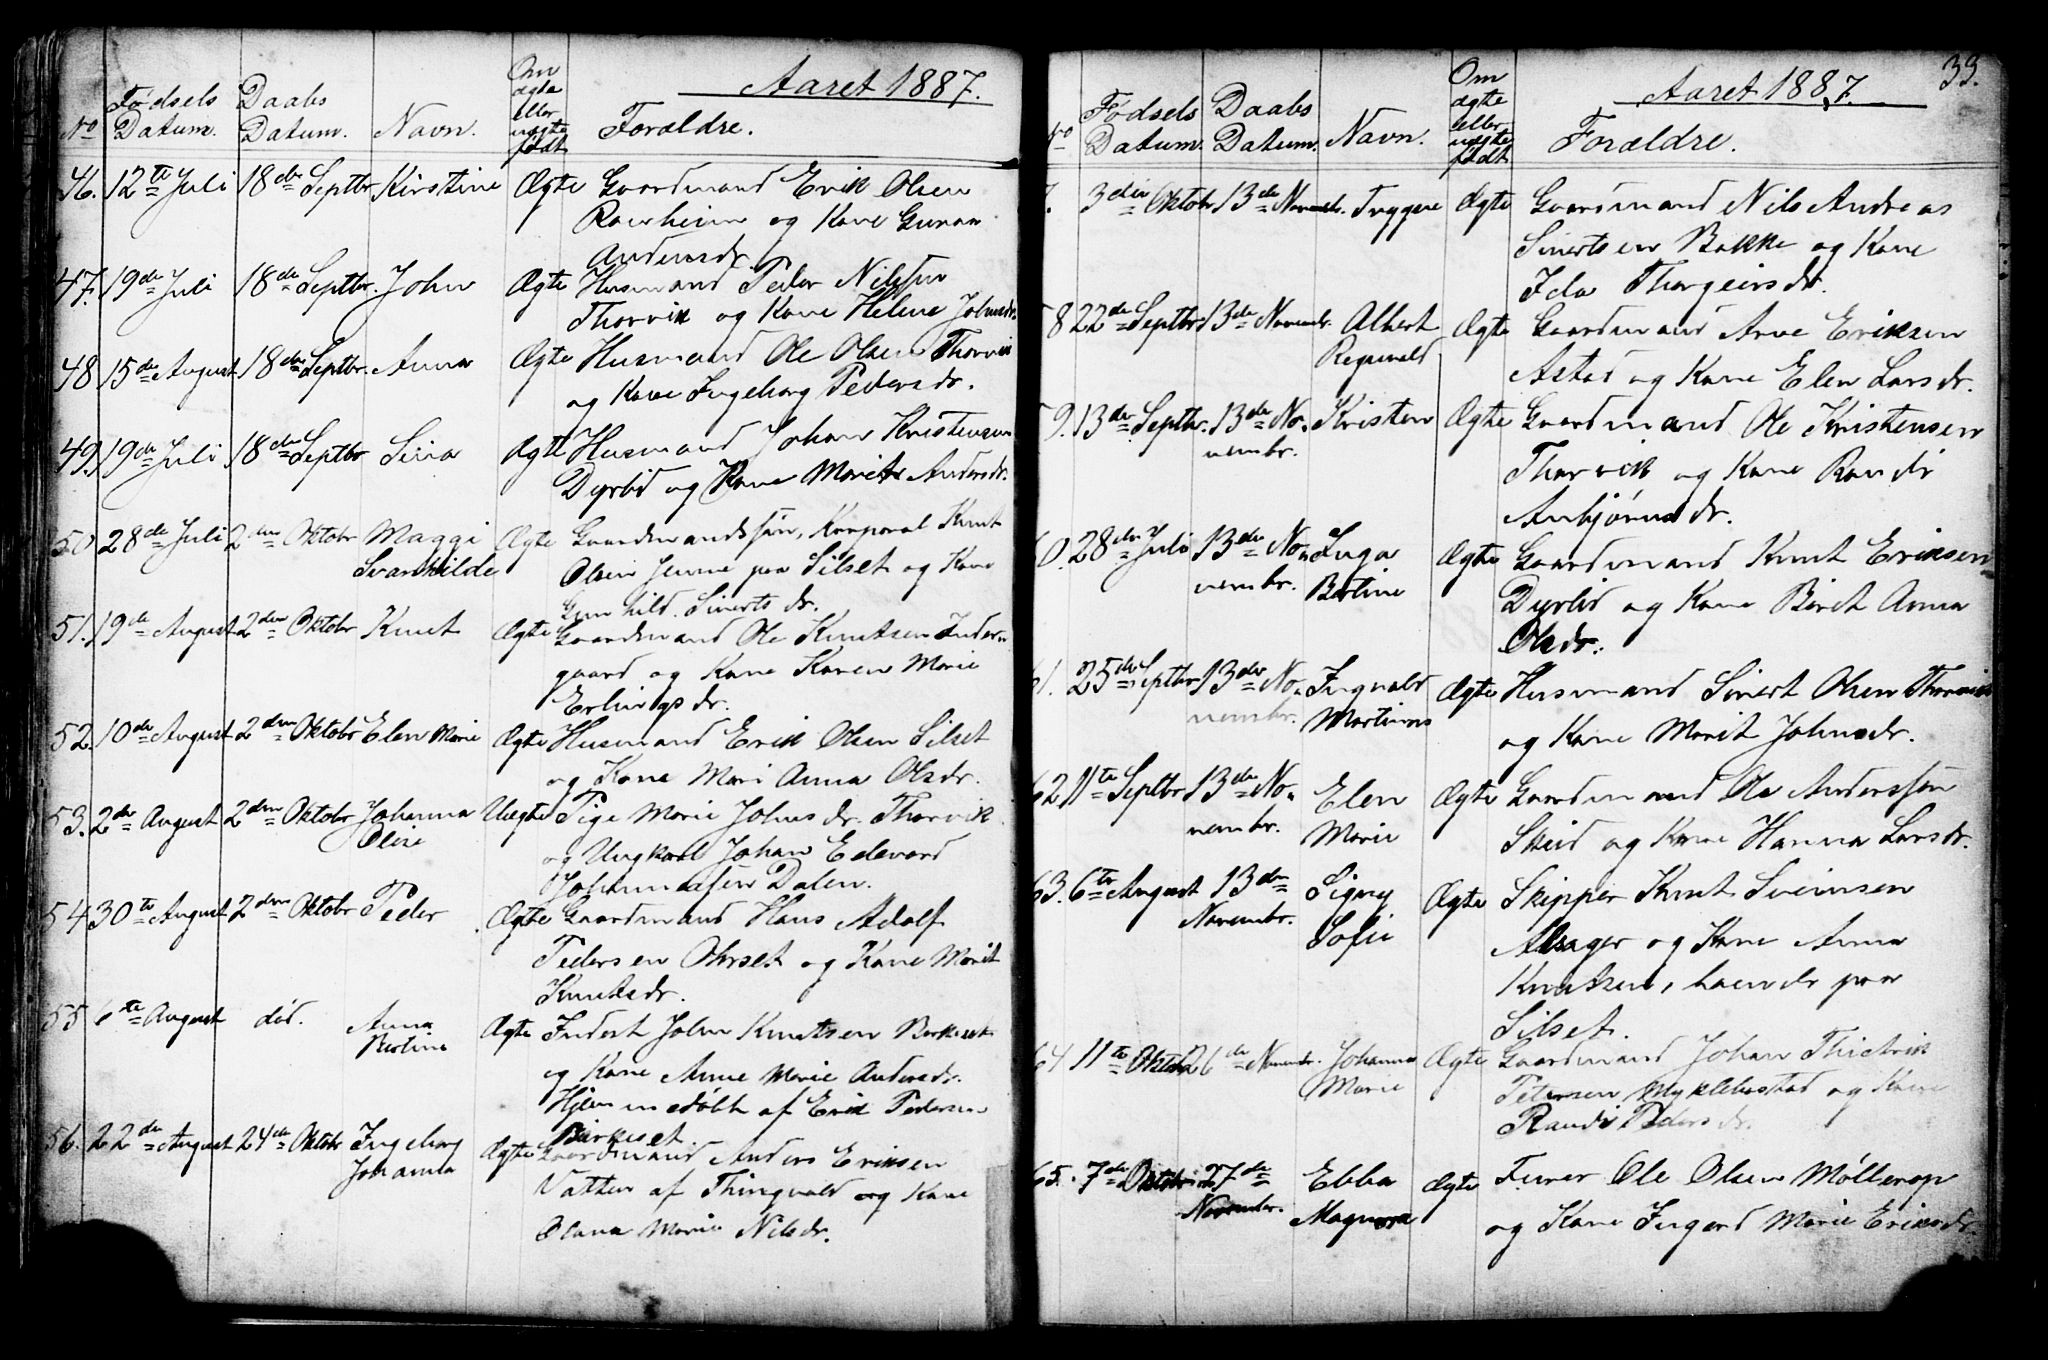 Aaret 1887.
No Fødsels Datum. Daabs Datum. Navn. Om ægte eller uægte født Forældre.
46. 12te Juli 18de Septbr Kirstine Ægte Gaardmand Erik Olsen
og Kone Gunna
Andersdr.
47. 19de Juli 18de Septbr. John Ægte Husmand Peder Nilssen
Thorvik og Kone Helene Johnsdr.
48 15de August 18de Septbr. Anna Ægte Husmand Ole Olsen Thorvik
og Kone Ingeborg Pedersdr.
49. 19de Juli 18de Septbr Sina Ægte Husmand Johan Kristensen
Dyrlid og Kone Marit Andersdr.
50. 28de Juli 2den Oktobr Maggi Ægte Gaardmandssøn, Korporal Knut
Svanhilde Olsen paa Silset og Kone
Gunhild Sivertsdr.
51. 19de August 2den Oktobr Knut Ægte Gaardmand Ole Knutsen Inder-
gaard og Kone Karen Marie
Erlingsdr.
52. 10de August 2den Oktobr Elen Marie Ægte Husmand Erik Olsen Silset
og Kone Mari Anna Olsdr.
53. 2den August 2den Oktobr Johanna Uægte Pige Marie Johnsdr. Thorvik
Oline og Ungkarl Johan Edevard
Johannessen Dalen.
54 30te August 2den Oktobr Peder Ægte Gaardmand Hans Adolf
Pedersen Orset og Kone Marit
Knutsdr.
55 6te August død. Anna Ægte Inderst John Knutsen Birkeset
Bertine og Kone Anne Marie Andersdr.
Hjemmedøbt af Erik Pedersen
Birkeset
56. 22de August 24de Oktobr Ingeborg Ægte Gaardmand Anders Eriksen
Johanna Vatten af Thingvold og Kone
Olana Marie Nilsdr.
33.
Aaret 1887.
No Fødsels Datum. Daabs Datum. Navn. Om ægte eller uægte født Forældre.
7. 3die Oktobr 13de Novembr. Tryggve Ægte Gaardmand Nils Andreas
Sivertsen Bakke og Kone
Ida Thorgeirsdr.
58 22de Septbr 13de Novembr. Albert Ægte Gaardmand Arne Eriksen
Reginald Astad og Kone Elen Larsdr.
9. 13de Septbr. 13de No- Kristen Ægte Gaardmand Ole Kristensen
vembr. Thorvik og Kone Randi
Anbjørnsdr.
60. 28de Juli 13de No- Inga Ægte Gaardmand Knut Eriksen
vembr. Bertine Dyrlid og Kone Berit Anna
Olsdr.
61. 25de Septbr 13de No- Ingvald Ægte Husmand Sivert Olsen Thorvik
vembr. Martinus og Kone Marit Johnsdr.
62 11te Septbr 13de No- Elen Ægte Gaardmand Ole Anderssøn
vembr. Marie Skeid og Kone Hanna Larsdr.
63. 6te August 13de Signy Ægte Skipper Knut Sveinsen
Novembr. Sofie Alsager og Kone Anna
Knutsen, boende paa
Silset.
64 11te Oktobr 26de Novembr. Johanna Ægte Gaardmand Johan Thidrik
Marie Petersen Myklebostad og Kone
Randi Pedersdr.
65. 7de Oktobr 27de Ebba Ægte Furer Ole Olsen Møllerop
Novembr. Magnora og Kone Ingerd Marie Eriksdr.